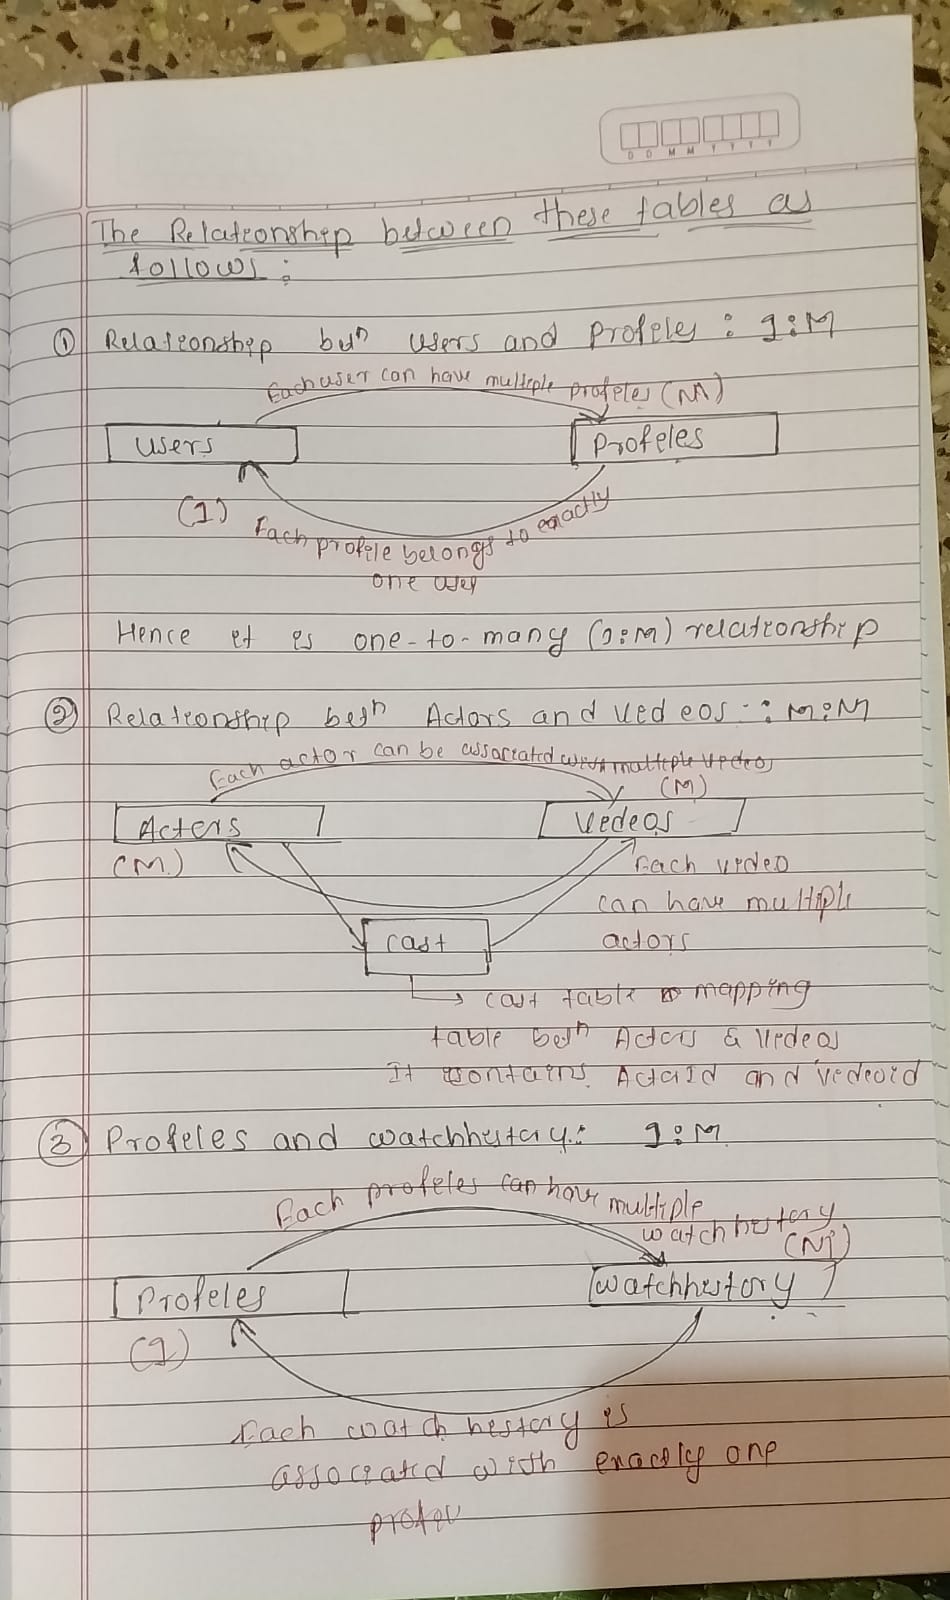 D D M M Y Y Y Y
The Relationship between these tables as
follows :
① Relationship betn Users and Profeles : 1:M
Each user can have multiple profeles (M)
Users
Profeles
(1)
Each profile belongs to exactly
one user
Hence it is one-to-many (1:M) relationship
② Relationship betn Actors and Vedeos : M:M
Each actor can be associated with multiple vedeos
(M)
Acters
Vedeos
(M)
Each video
can have multiple
actors
cast
→ cast table is mapping
table betn Actors & Vedeos
It contains ActorId and Vedeoid
③ Profeles and watchhestory : 1:M
Each profeles can have multiple
watchhestory
(M)
Profeles
Watchhestory
(1)
Each watch hestory is
associated with exactly one